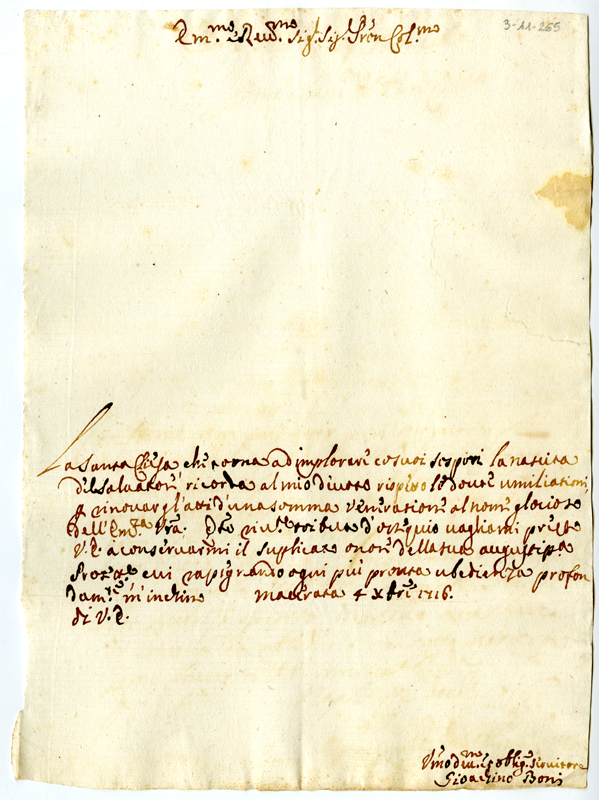 3-11-255
Em.mo e Rev.mo Sig. Sig. Pron Col.mo
La Santa Chiesa che torna ad implorare co suoi sospiri la nascita
del Salvatore ricorda al mio divoto rispetto le dovute umiliationi,
e rinovar gl'atti d'una somma veneratione al nome glorioso
dell'Em.za Vra. Qto river.te tributo d'ossequio vagliami presso
V. E. a conservarmi il suplicato onore della sua augustissa
Proz.ne cui rassignando ogni più pronta ubedienza profon
dam.te m'inchino Macerata 4 Xbre 1716.
di V. E.
Vmo dev.mo et oblig. servitore
Gioachino Boni